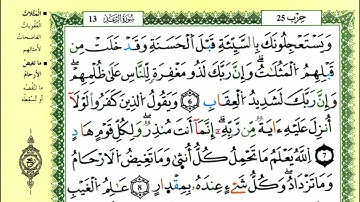 حزب 25
سورة الرعد 13
وَيَسْتَعْجِلُونَكَ بِالسَّيِّئَةِ قَبْلَ الْحَسَنَةِ وَقَدْ خَلَتْ مِن
قَبْلِهِمُ الْمَثُلَٰتُ وَإِنَّ رَبَّكَ لَذُو مَغْفِرَةٍ لِّلنَّاسِ عَلَىٰ ظُلْمِهِمْ
وَإِنَّ رَبَّكَ لَشَدِيدُ الْعِقَابِ 6 وَيَقُولُ الذِينَ كَفَرُوا لَوْلَا
أُنزِلَ عَلَيْهِ ءَايَةٌ مِّن رَّبِّهِ إِنَّمَا أَنتَ مُنذِرٌ وَلِكُلِّ قَوْمٍ هَادٍ
7 اللَّهُ يَعْلَمُ مَا تَحْمِلُ كُلُّ أُنثَىٰ وَمَا تَغِيضُ الْأَرْحَامُ
وَمَا تَزْدَادُ وَكُلُّ شَيْءٍ عِندَهُ بِمِقْدَارٍ 8 عَٰلِمُ الْغَيْبِ
المثلات
العقوبات
الفاضحات
لأمثالهم
ما تغيض
الأرحام
ما تنقصه
أو تسقطه